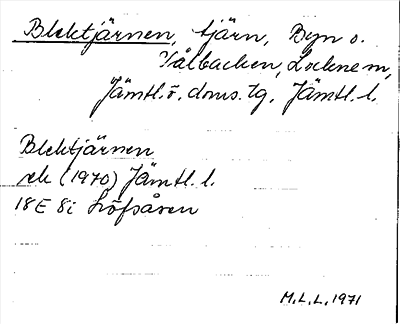 Blektjärnen, tjärn, Byn o.
Vålbacken, Lockne sn,
Jämtl. ö. doms. tg. Jämtl. l.
Blektjärnen
ek (1970) Jämtl. l.
18E 8i Löfsåsen
M.L.L. 1971